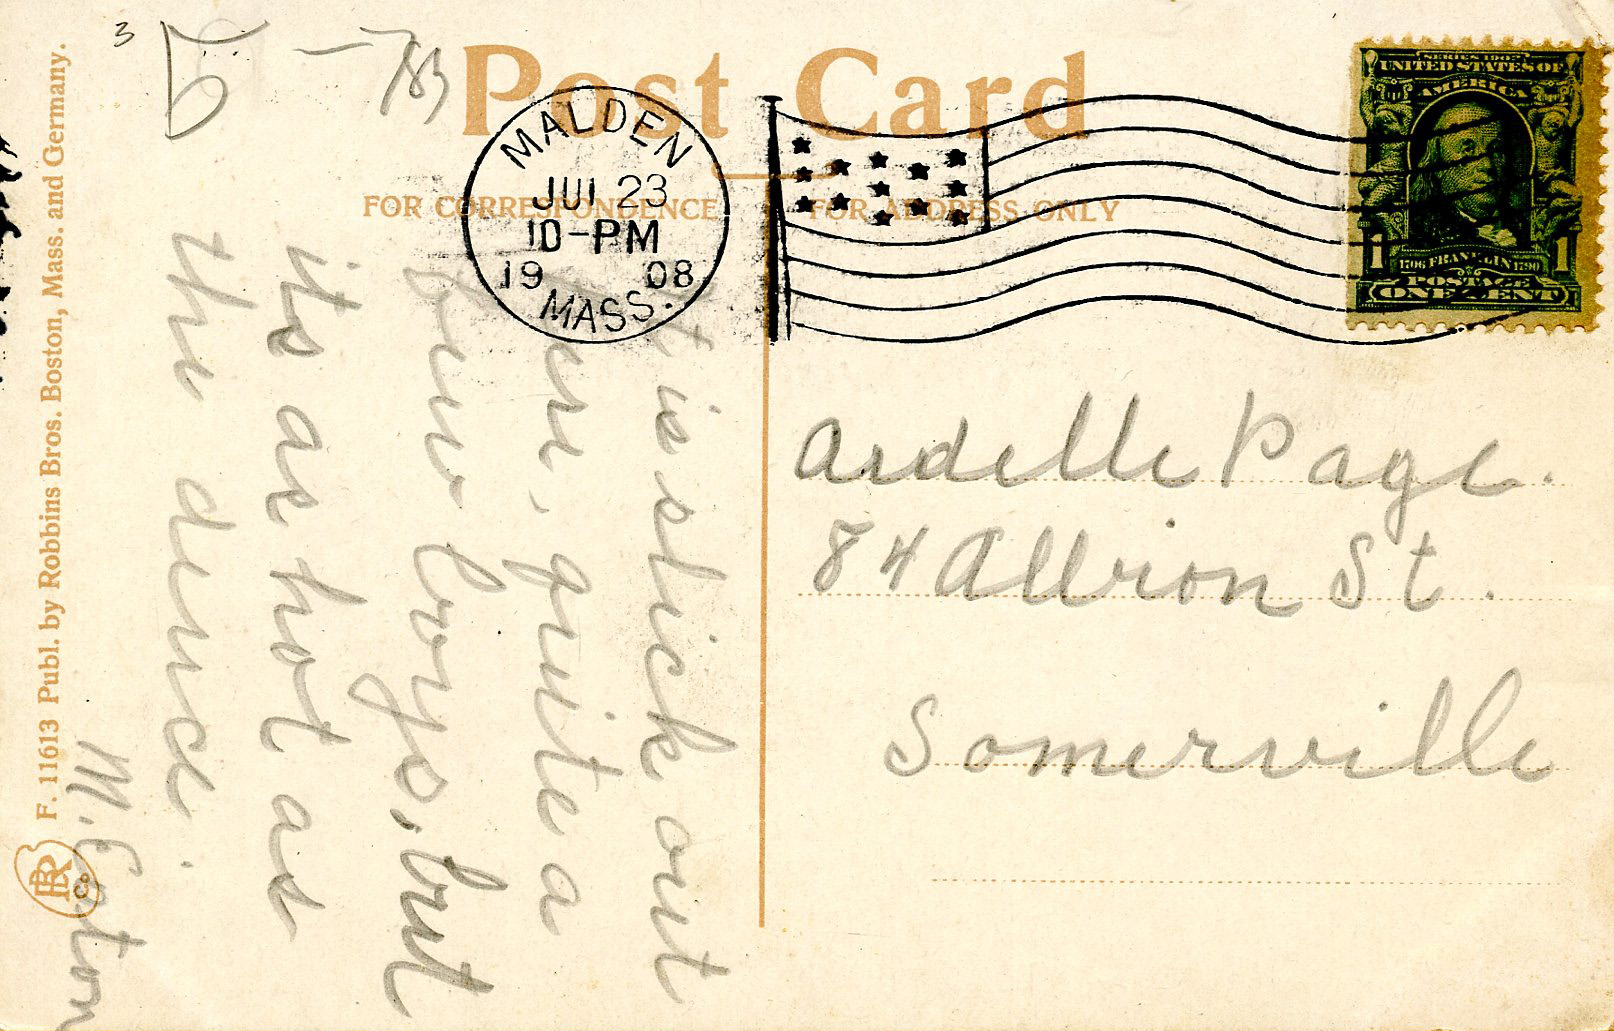 Post Card
FOR CORRESPONDENCE
FOR ADDRESS ONLY
MALDEN
JUL 23
10-PM
1908
MASS.
SERIES 1902
UNITED STATES OF
AMERICA
1706 FRANKLIN 1790
POSTAGE
1 1
ONE CENT
Ardelle Page.
84 Albion St.
Somerville
It is slick out
here, quite a
few boys, but
its as hot as
the deuce.
M. Eaton
F. 11613 Publ. by Robbins Bros. Boston, Mass. and Germany.
RB Co
3